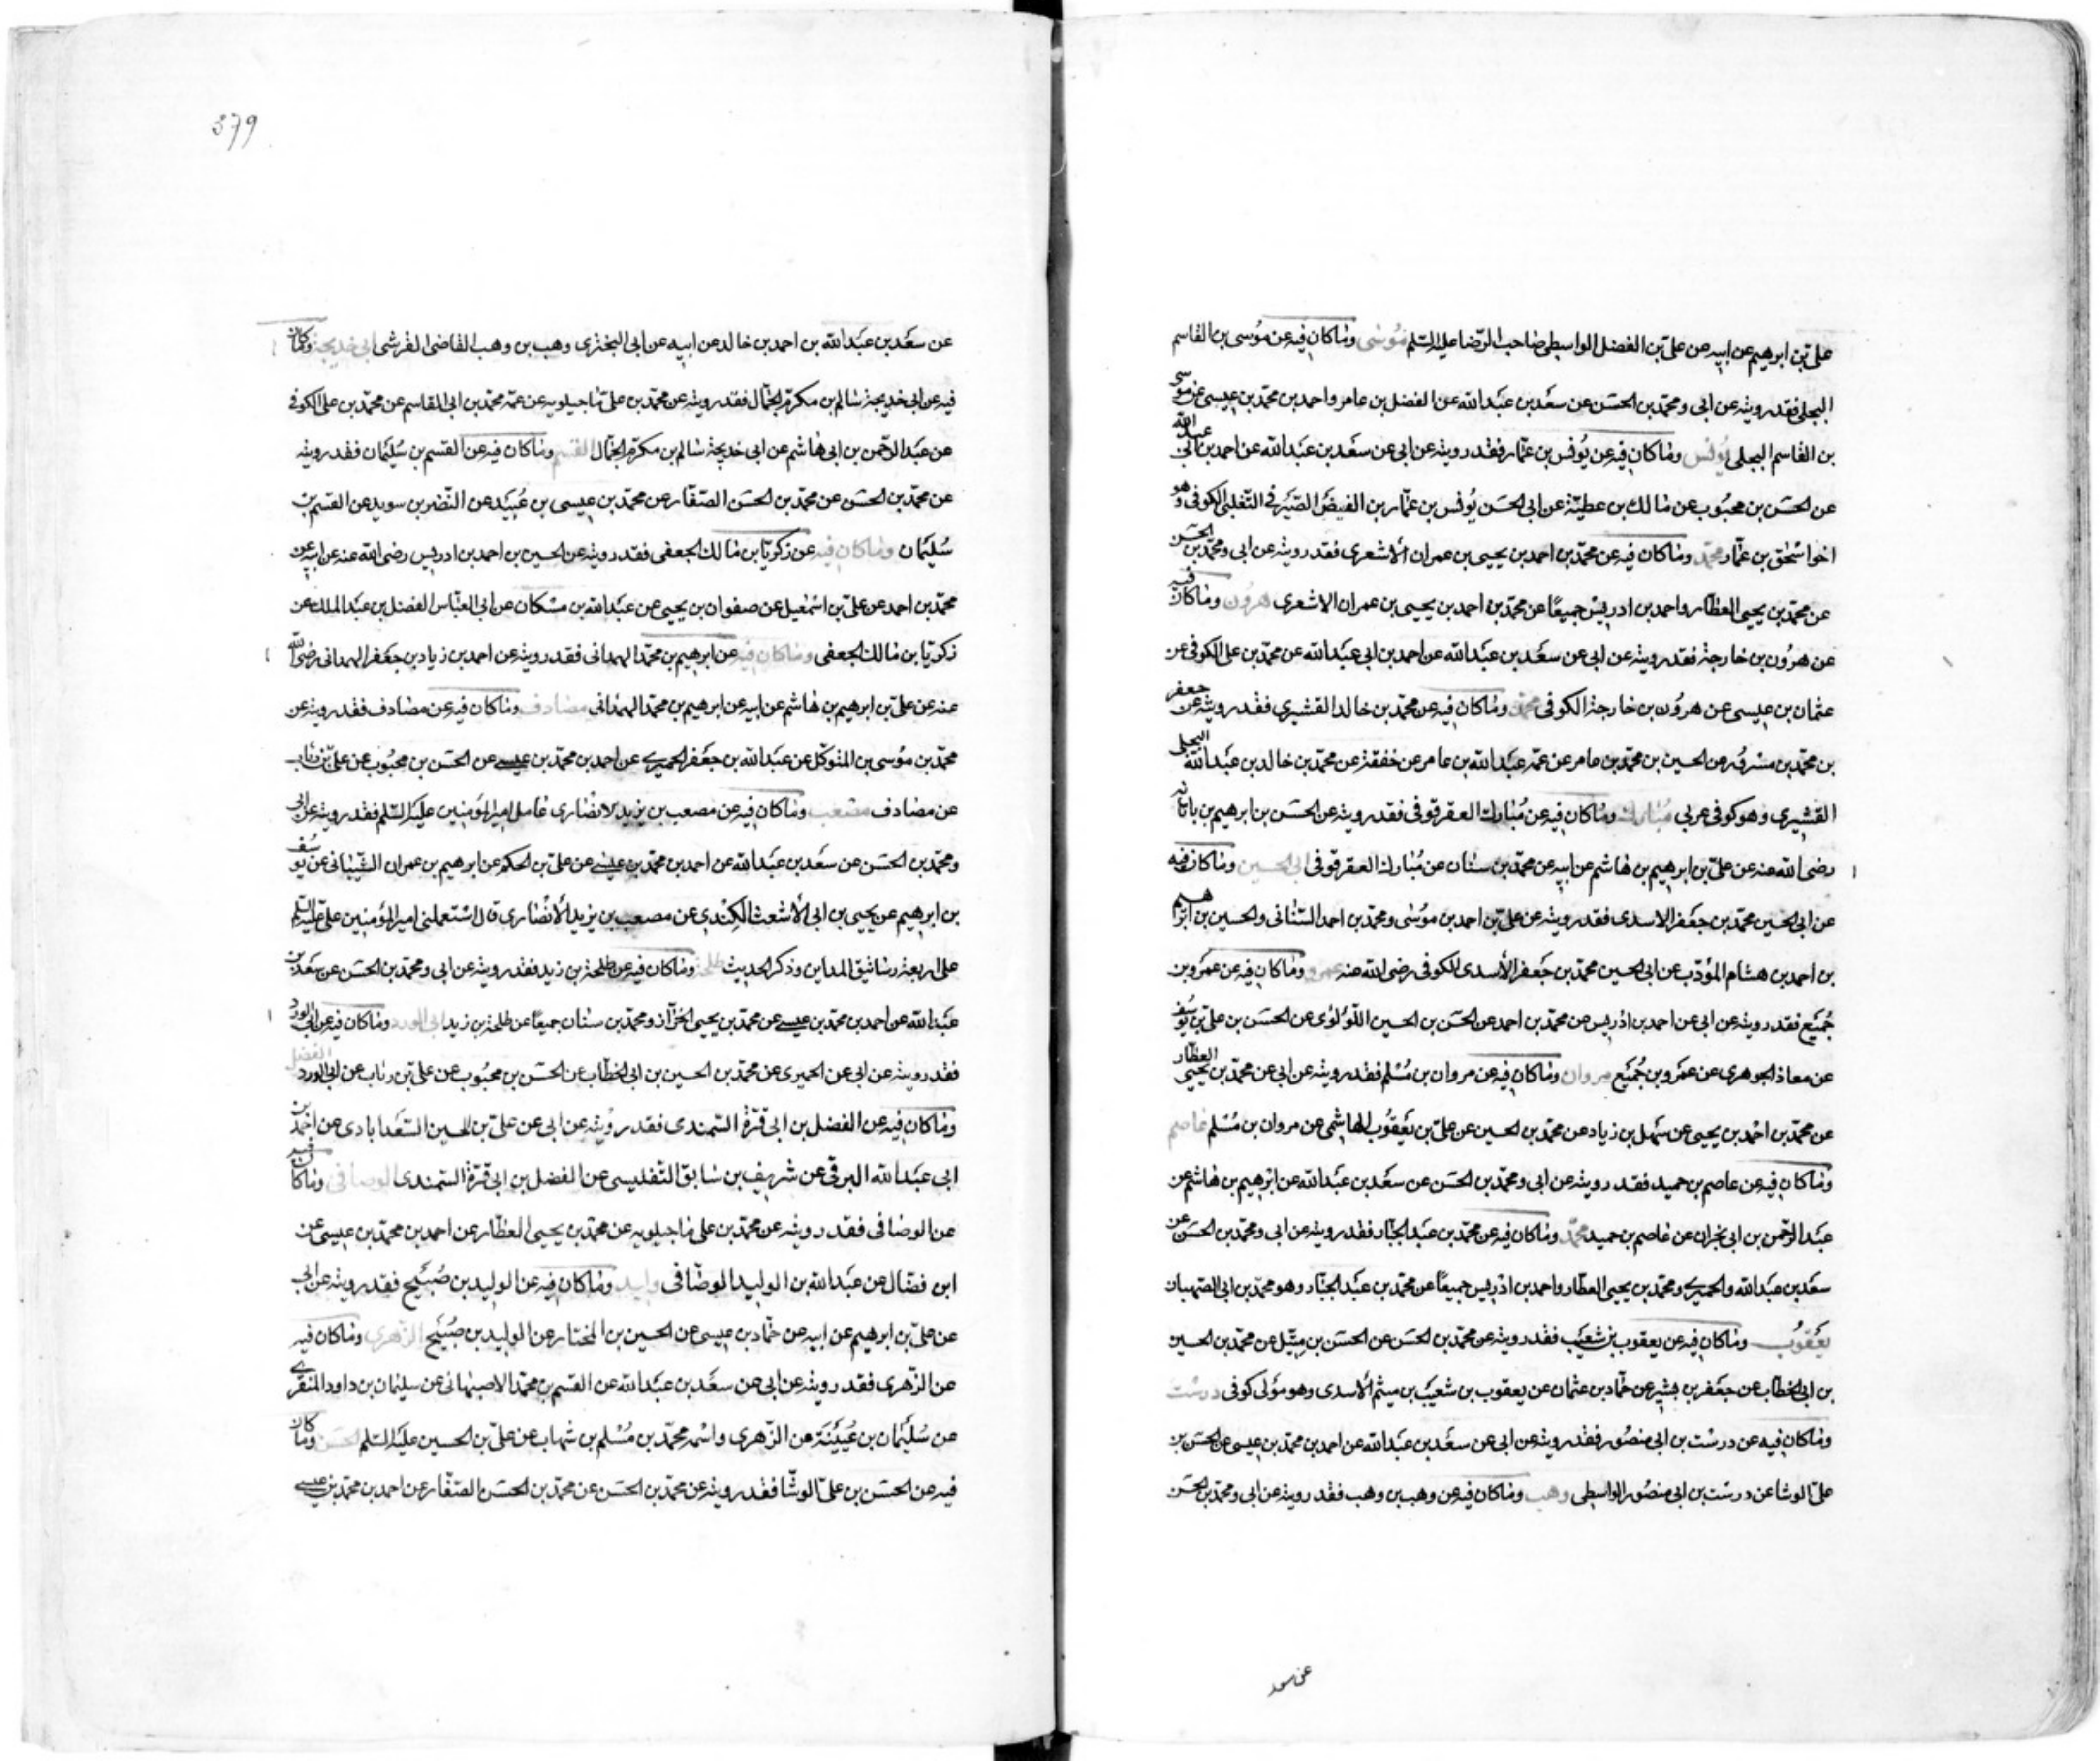 على بن ابرهيم عن ابيه عن على بن الفضل الواسطى صاحب الرضا عليه السلم موسى وماكان فيه عن موسى بن القاسم
البجلى فقد رويته عن ابى ومحمد بن الحسن عن سعد بن عبد الله عن الفضل بن عامر واحمد بن محمد بن عيسى عن موسى
بن القاسم البجلى يونس وماكان فيه عن يونس بن عمار فقد رويته عن ابى عن سعد بن عبد الله عن احمد بن ابى عبد الله
عن الحسن بن محبوب عن مالك بن عطية عن ابى الحسن يونس بن عمار بن الفيض الصيرفى التغلبى الكوفى وهو
اخو اسحق بن عمار محمد وماكان فيه عن محمد بن احمد بن يحيى بن عمران الاشعرى فقد رويته عن ابى ومحمد بن الحسن
عن محمد بن يحيى العطار واحمد بن ادريس جميعا عن محمد بن احمد بن يحيى بن عمران الاشعرى هرون وماكان فيه
عن هرون بن خارجة فقد رويته عن ابى عن سعد بن عبد الله عن احمد بن ابى عبد الله عن محمد بن على الكوفى عن
عثمان بن عيسى عن هرون بن خارجة الكوفى محمد وماكان فيه عن محمد بن خالد القشيرى فقد رويته عن جعفر
بن محمد بن مسرور عن الحسين بن محمد بن عامر عن عمه عبد الله بن عامر عن خفقة عن محمد بن خالد بن عبد الله البجلى
القشيرى وهو كوفى عربى مبارك وماكان فيه عن مبارك العقرقوفى فقد رويته عن الحسن بن ابرهيم بن باتانه
رضى الله عنه عن على بن ابرهيم بن هاشم عن ابيه عن محمد بن سنان عن مبارك العقرقوفى ابى الحسين وماكان فيه
عن ابى الحسين محمد بن جعفر الاسدى فقد رويته عن على بن احمد بن موسى ومحمد بن احمد السنانى والحسين بن ابرهيم
بن احمد بن هشام المؤدب عن ابى الحسين محمد بن جعفر الأسدى الكوفى رضى الله عنه عمرو وماكان فيه عن عمرو بن
جميع فقد رويته عن ابى عن احمد بن ادريس عن محمد بن احمد عن الحسن بن الحسين اللؤلؤى عن الحسن بن على بن يوسف
عن معاذ الجوهرى عن عمرو بن جميع مروان وماكان فيه عن مروان بن مسلم فقد رويته عن ابى عن محمد بن يحيى العطار
عن محمد بن احمد بن يحيى عن سهل بن زياد عن محمد بن الحسين عن على بن يعقوب الهاشمى عن مروان بن مسلم عاصم
وماكان فيه عن عاصم بن حميد فقد رويته عن ابى ومحمد بن الحسن عن سعد بن عبد الله عن ابرهيم بن هاشم عن
عبد الرحمن بن ابى نجران عن عاصم بن حميد محمد وماكان فيه عن محمد بن عبد الجبار فقد رويته عن ابى ومحمد بن الحسن عن
سعد بن عبد الله والحميرى ومحمد بن يحيى العطار واحمد بن ادريس جميعا عن محمد بن عبد الجبار وهو محمد بن ابى الصهبان
يعقوب وماكان فيه عن يعقوب بن شعيب فقد رويته عن محمد بن الحسن عن الحسن بن متيل عن محمد بن الحسين
بن ابى الخطاب عن جعفر بن بشير عن حماد بن عثمان عن يعقوب بن شعيب بن ميثم الأسدى وهو مولى كوفى درست
وماكان فيه عن درست بن ابى منصور فقد رويته عن ابى عن سعد بن عبد الله عن احمد بن محمد بن عيسى عن الحسن بن
على الوشا عن درست بن ابى منصور الواسطى وهب وماكان فيه عن وهب بن وهب فقد رويته عن ابى ومحمد بن الحسن
عن سعد
379
عن سعد بن عبد الله بن احمد بن خالد عن ابيه عن ابى البخترى وهب بن وهب القاضى القرشى ابى خديجة وماكان
فيه عن ابى خديجة سالم بن مكرم الجمال فقد رويته عن محمد بن على ماجيلويه عن عمه محمد بن ابى القاسم عن محمد بن على الكوفى
عن عبد الرحمن بن ابى هاشم عن ابى خديجة سالم بن مكرم الجمال القسم وماكان فيه عن القسم بن سليمان فقد رويته
عن محمد بن الحسن عن محمد بن الحسن الصفار عن محمد بن عيسى بن عبيد عن النضر بن سويد عن القسم بن
سليمان وماكان فيه عن زكريا بن مالك الجعفى فقد رويته عن الحسين بن احمد بن ادريس رضى الله عنه عن ابيه عن
محمد بن احمد عن على بن اسمعيل عن صفوان بن يحيى عن عبد الله بن مسكان عن ابى العباس الفضل بن عبد الملك عن
زكريا بن مالك الجعفى وماكان فيه عن ابرهيم بن محمد الهمدانى فقد رويته عن احمد بن زياد بن جعفر الهمدانى رضى الله
عنه عن على بن ابرهيم بن هاشم عن ابيه عن ابرهيم بن محمد الهمدانى مصادف وماكان فيه عن مصادف فقد رويته عن
محمد بن موسى بن المتوكل عن عبد الله بن جعفر الحميرى عن احمد بن محمد بن عيسى عن الحسن بن محبوب عن على بن رئاب
عن مصادف مصعب وماكان فيه عن مصعب بن يزيد الانصارى عامل امير المؤمنين عليه السلم فقد رويته عن ابى
ومحمد بن الحسن عن سعد بن عبد الله عن احمد بن محمد بن عيسى عن على بن الحكم عن ابرهيم بن عمران الشيبانى عن يوسف
بن ابرهيم عن يحيى بن ابى الأشعث الكندى عن مصعب بن يزيد الأنصارى قال استعملنى امير المؤمنين على عليه السلم
على اربعة رساتيق المداين وذكر الحديث طلحة وماكان فيه عن طلحة بن زيد فقد رويته عن ابى ومحمد بن الحسن عن سعد بن
عبد الله عن احمد بن محمد بن عيسى عن محمد بن يحيى الخزاز ومحمد بن سنان جميعا عن طلحة بن زيد ابى الورد وماكان فيه عن ابى الورد
فقد رويته عن ابى عن الحميرى عن محمد بن الحسين بن ابى الخطاب عن الحسن بن محبوب عن على بن رئاب عن ابى الورد الفضل
وماكان فيه عن الفضل بن ابى قرة السمندى فقد رويته عن ابى عن على بن الحسين السعدابادى عن احمد بن
ابى عبد الله البرقى عن شريف بن سابق التفليسى عن الفضل بن ابى قرة السمندى الوصافى وماكان فيه
عن الوصافى فقد رويته عن محمد بن على ماجيلويه عن محمد بن يحيى العطار عن احمد بن محمد بن عيسى عن
ابن فضال عن عبد الله بن الوليد الوصافى وليد وماكان فيه عن الوليد بن صبيح فقد رويته عن ابى
عن على بن ابرهيم عن ابيه عن حماد بن عيسى عن الحسين بن المختار عن الوليد بن صبيح الزهرى وماكان فيه
عن الزهرى فقد رويته عن ابى عن سعد بن عبد الله عن القسم بن محمد الاصبهانى عن سليمان بن داود المنقرى
عن سليمان بن عيينة عن الزهرى واسمه محمد بن مسلم بن شهاب عن على بن الحسين عليه السلم الحسن وماكان
فيه عن الحسن بن على الوشا فقد رويته عن محمد بن الحسن عن محمد بن الحسن الصفار عن احمد بن محمد بن عيسى